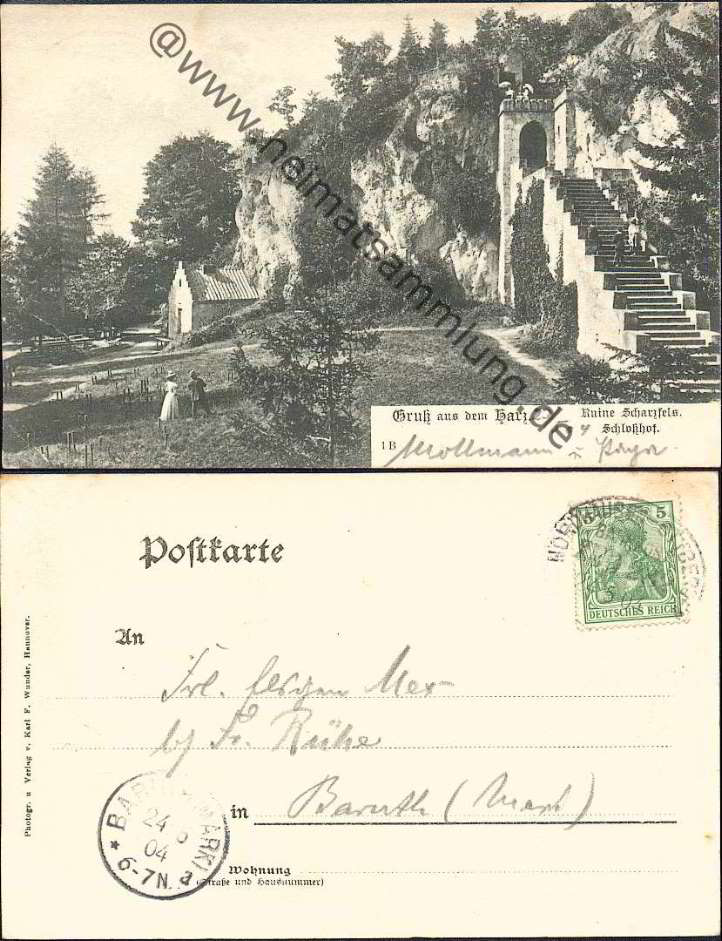 @www.heimatsammlung.de
Gruß aus dem Harz.
Ruine Scharzfels.
Schloßhof.
1B
Mollmann u
Postkarte
NORDHAUSEN
5 5
DEUTSCHES REICH
An
Frl. Mex
b/ Fr. Rühe
in Baruth (Mark)
BARUTH (MARK)
24 5
04
* 6-7N. a
Wohnung
(Straße und Hausnummer)
Photogr. u Verlag v. Karl F. Wunder, Hannover.